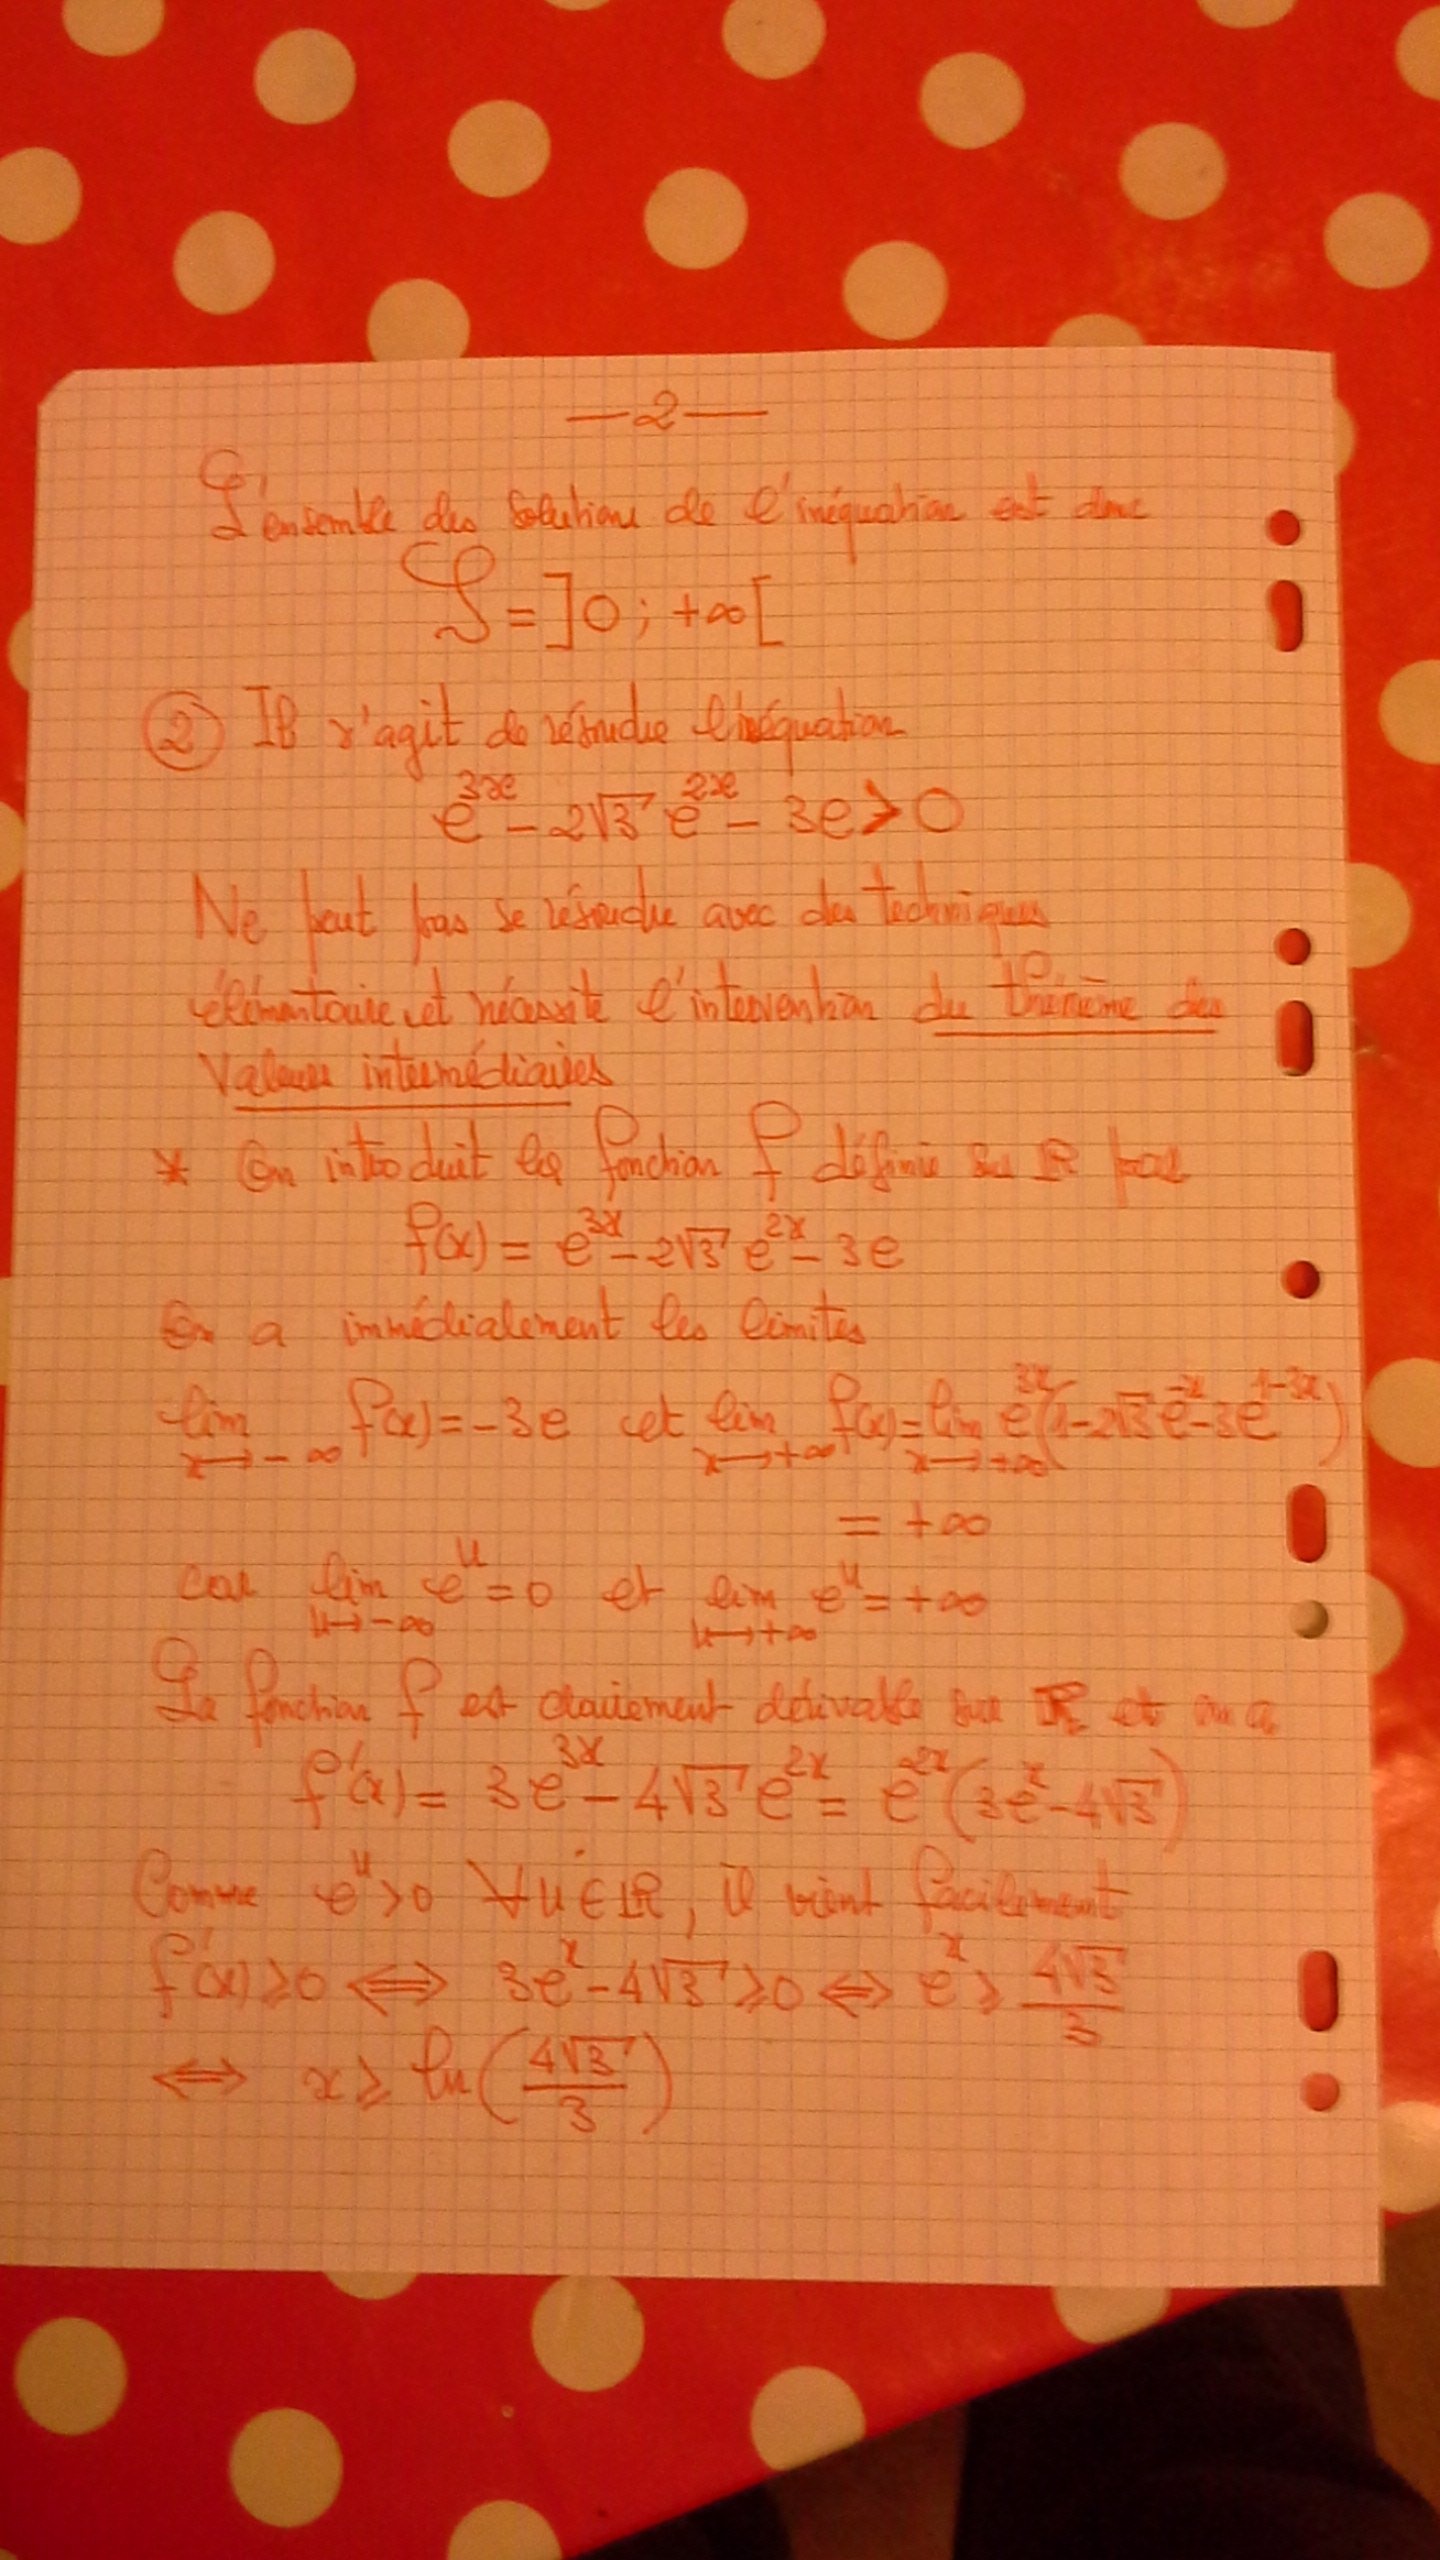 —2—
L'ensemble des solutions de l'inéquation est donc
S = ]0 ; +∞[
② Il s'agit de résoudre l'inéquation
e^{3x} - 2√3 e^{2x} - 3e > 0
Ne peut pas se résoudre avec des techniques
élémentaire et nécessite l'intervention du théorème des
Valeurs intermédiaires
* On introduit la fonction f définie sur ℝ par
f(x) = e^{3x} - 2√3 e^{2x} - 3e
On a immédiatement les limites
lim_{x→-∞} f(x) = -3e et lim_{x→+∞} f(x) = lim_{x→+∞} e^{3x}(1 - 2√3 e^{-x} - 3e^{1-3x})
= +∞
car lim_{u→-∞} e^u = 0 et lim_{u→+∞} e^u = +∞
La fonction f est clairement dérivable sur ℝ et on a
f'(x) = 3e^{3x} - 4√3 e^{2x} = e^{2x}(3e^x - 4√3)
Comme e^u > 0 ∀u ∈ ℝ, il vient facilement
f'(x) ≥ 0 ⟺ 3e^x - 4√3 ≥ 0 ⟺ e^x ≥ 4√3/3
⟺ x ≥ ln(4√3/3)